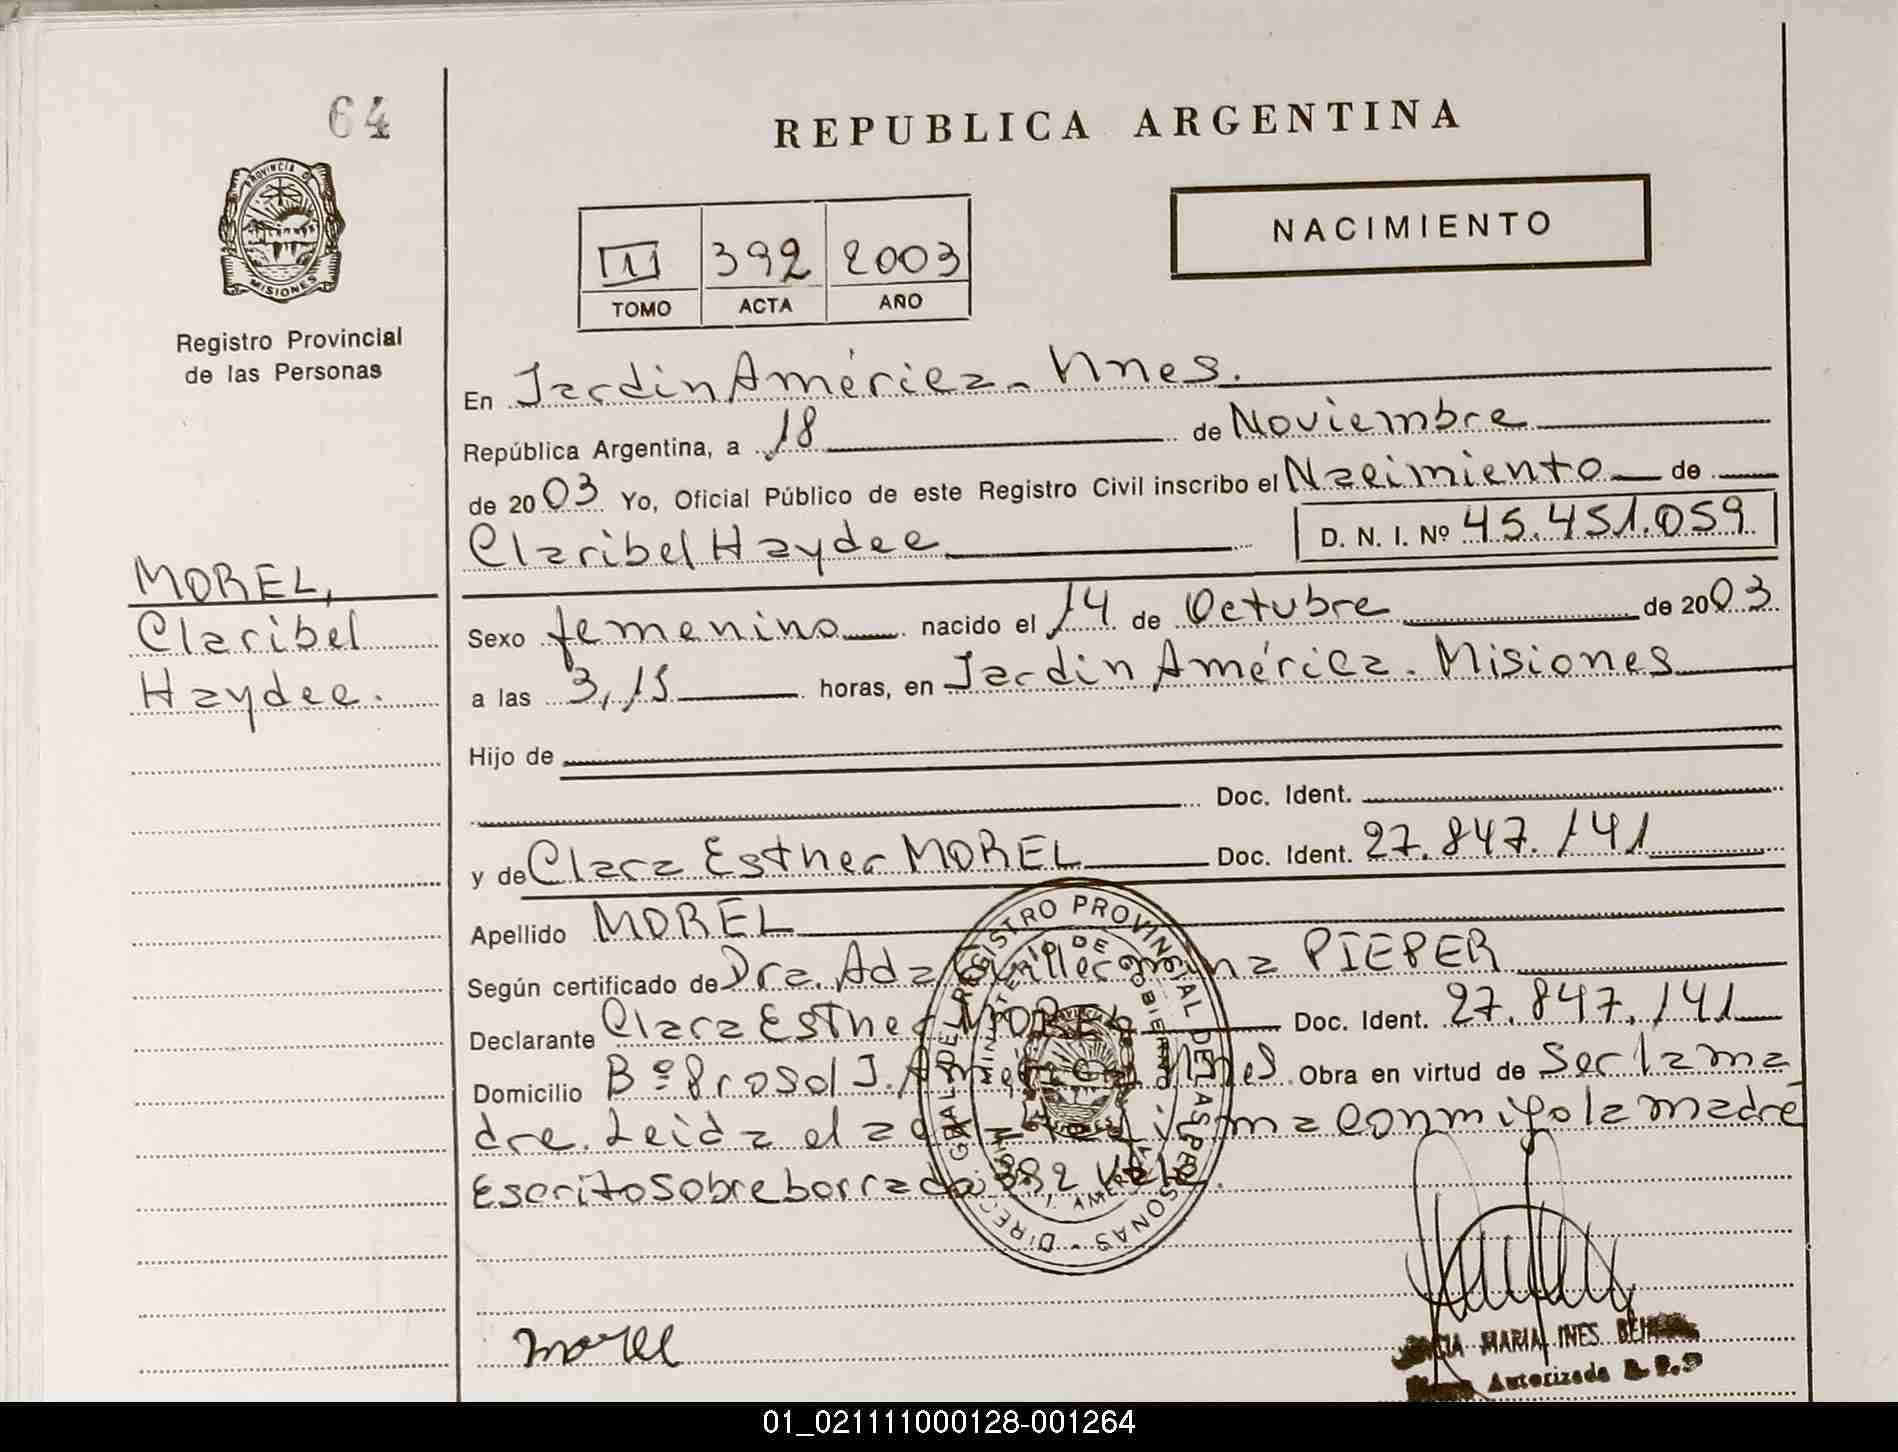 64
REPUBLICA ARGENTINA
PROVINCIA D
MISIONES
Registro Provincial
de las Personas
II 392 2003
TOMO ACTA AÑO
NACIMIENTO
En Jardin América - Mnes.
República Argentina, a 18 de Noviembre
de 2003 Yo, Oficial Público de este Registro Civil inscribo el Nacimiento de
Claribel Haydee D. N. I. Nº 45.451.059
MOREL,
Claribel
Haydee.
Sexo femenino nacido el 14 de Octubre de 2003
a las 3,15 horas, en Jardin América. Misiones
Hijo de
Doc. Ident.
y de Clara Esther MOREL Doc. Ident. 27.847.141
Apellido MOREL
Según certificado de Dra. Ada Guillermina PIEPER
Declarante Clara Esther MOREL Doc. Ident. 27.847.141
Domicilio Bº Prosol J. América Mnes. Obra en virtud de Ser la ma
dre. Leida el acta firma conmigo la madre
Escrito sobre borrado: 392 Vale.
DIREC. GRAL DEL REGISTRO PROVINCIAL DE LAS PERSONAS
MINISTERIO DE GOBIERNO
J. AMERICA
Morel
MARIA INES
Autorizada
01_021111000128-001264